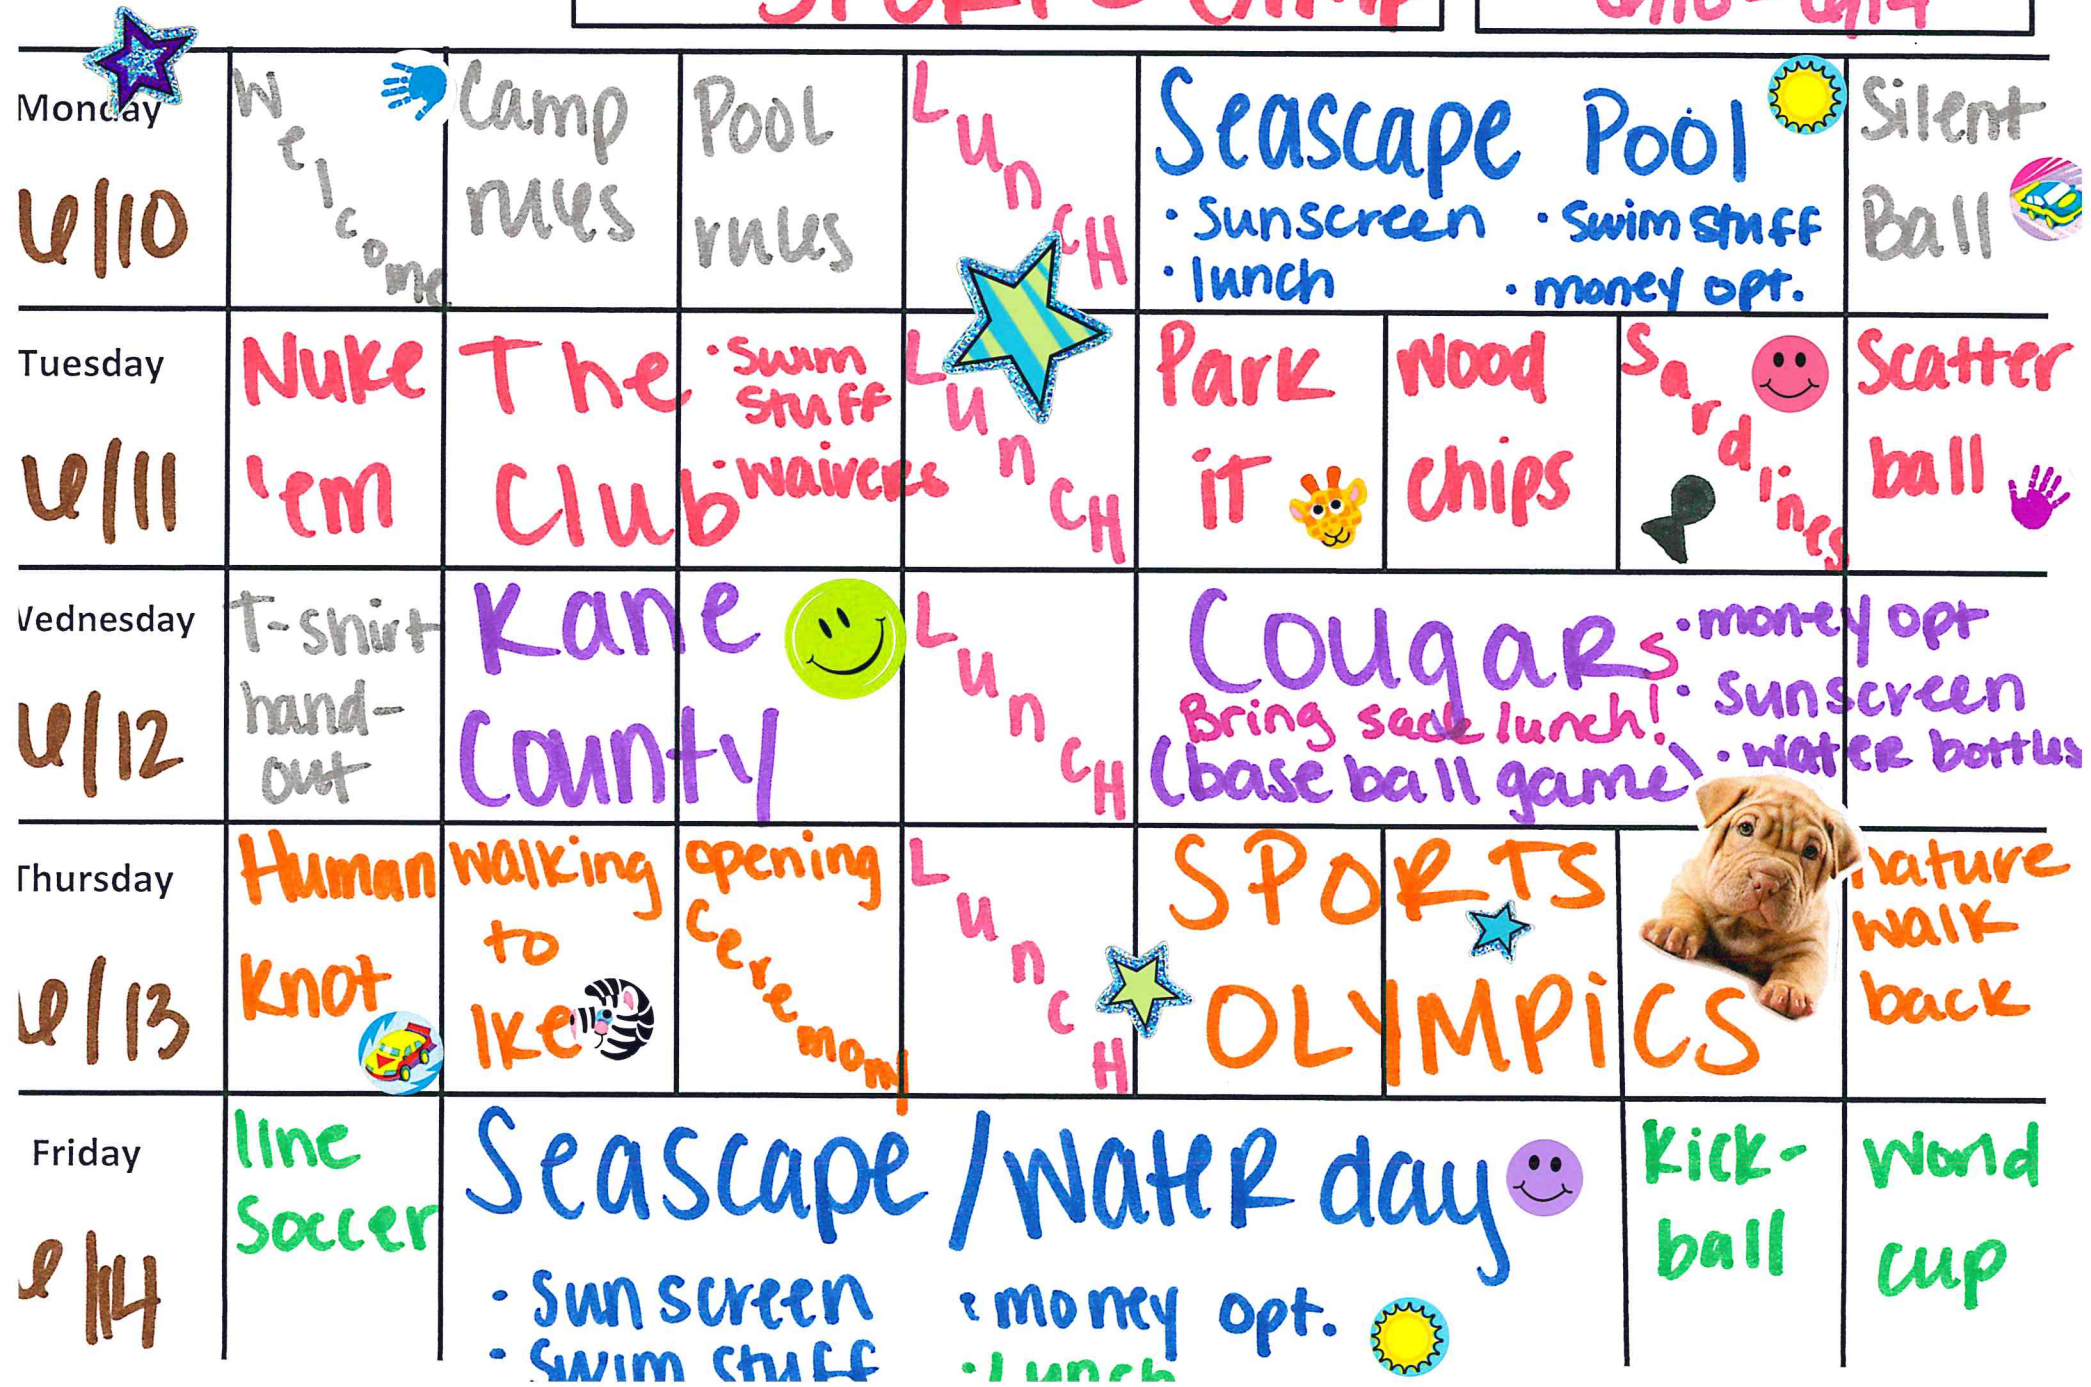 SPORTS CAMP
6/10-6/14
Monday
6/10
Welcome
Camp
rules
POOL
rules
LunCH
Seascape Pool
· Sunscreen · Swim stuff
· lunch · money opt.
Silent
Ball
Tuesday
6/11
Nuke
'em
The
Club
· Swim
stuff
· waivers
LunCH
Park
it
wood
chips
Sardines
Scatter
ball
Wednesday
6/12
T-shirt
hand-
out
Kane
County
LunCH
Cougars
Bring sack lunch!
(baseball game)
· money opt
· Sunscreen
· water bottles
Thursday
6/13
Human
knot
walking
to
Ike
opening
Ceremony
LuncH
SPORTS
OLYMPiCS
nature
walk
back
Friday
6/14
line
Soccer
Seascape / water day
· Sunscreen · money opt.
· Swim stuff · Lunch
kick-
ball
World
cup